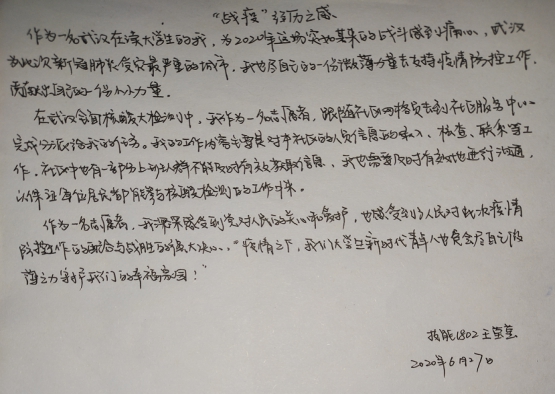 “战疫”经历之感
作为一名武汉在读大学生的我，为2020年这场突如其来的战斗感到痛心，武汉
为此次新冠肺炎受灾最严重的城市，我也尽自己的一份微薄力量去支持疫情防控工作，
贡献出自己的一份小小力量。
在武汉全面核酸大检测中，我作为一名志愿者，跟随社区网格员去到社区服务中心
完成分配给我的任务。我的工作内容主要是对本社区的人员信息的录入、检查、联系等工
作，社区中也有一部分上班人群不能及时有效获取信息，我也需要及时有效地进行沟通，
以保证每位居民都能参与核酸检测的工作中来。
作为一名志愿者，我深深感受到党对人民的关心和爱护，也感受到了人民对此次疫情
防控工作的配合与战胜的强大决心，“疫情之下，我们大学生新时代青年人也会尽自己微
薄之力守护我们的幸福家园！”
技能1802 王莹莹
2020年6月27日